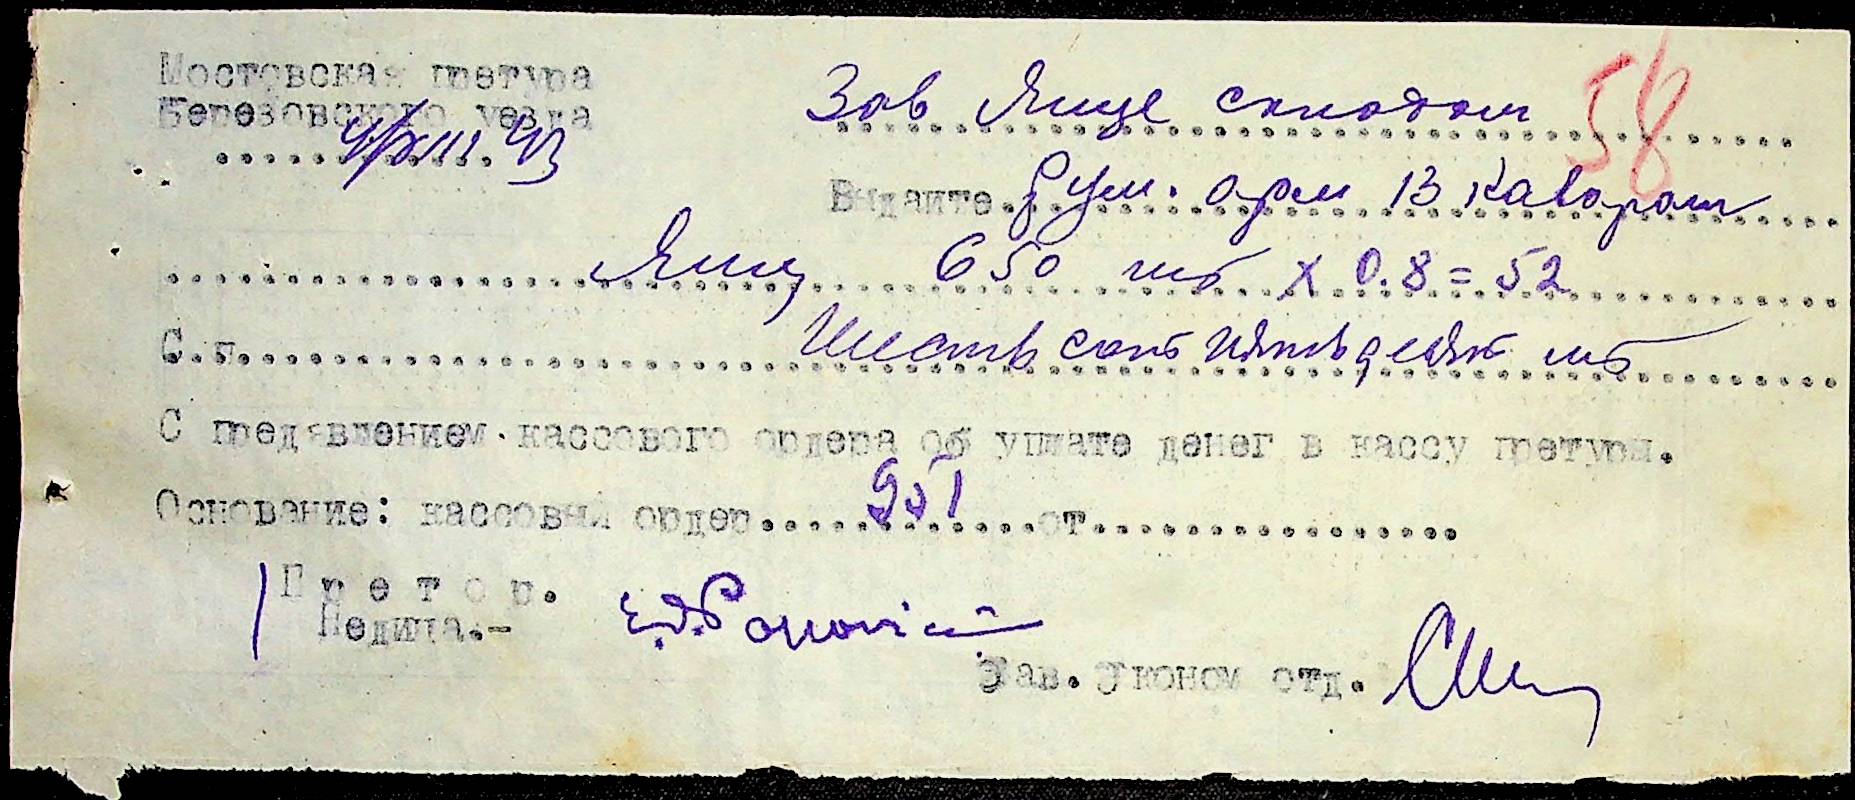 Мостовская претура
Березовского уезда
4/XIII.43
Зав Яице складом
58
Выдайте. Рум. арм 13 Каваром
Яиц 650 шт х 0.8 = 52
С.п. Шестьсот пятьдесят шт
С предявлением кассового ордера об уплате денег в кассу претуры.
Основание: кассовый ордер 951 от
Претор.
Недича.-
Зав. Эконом отд.